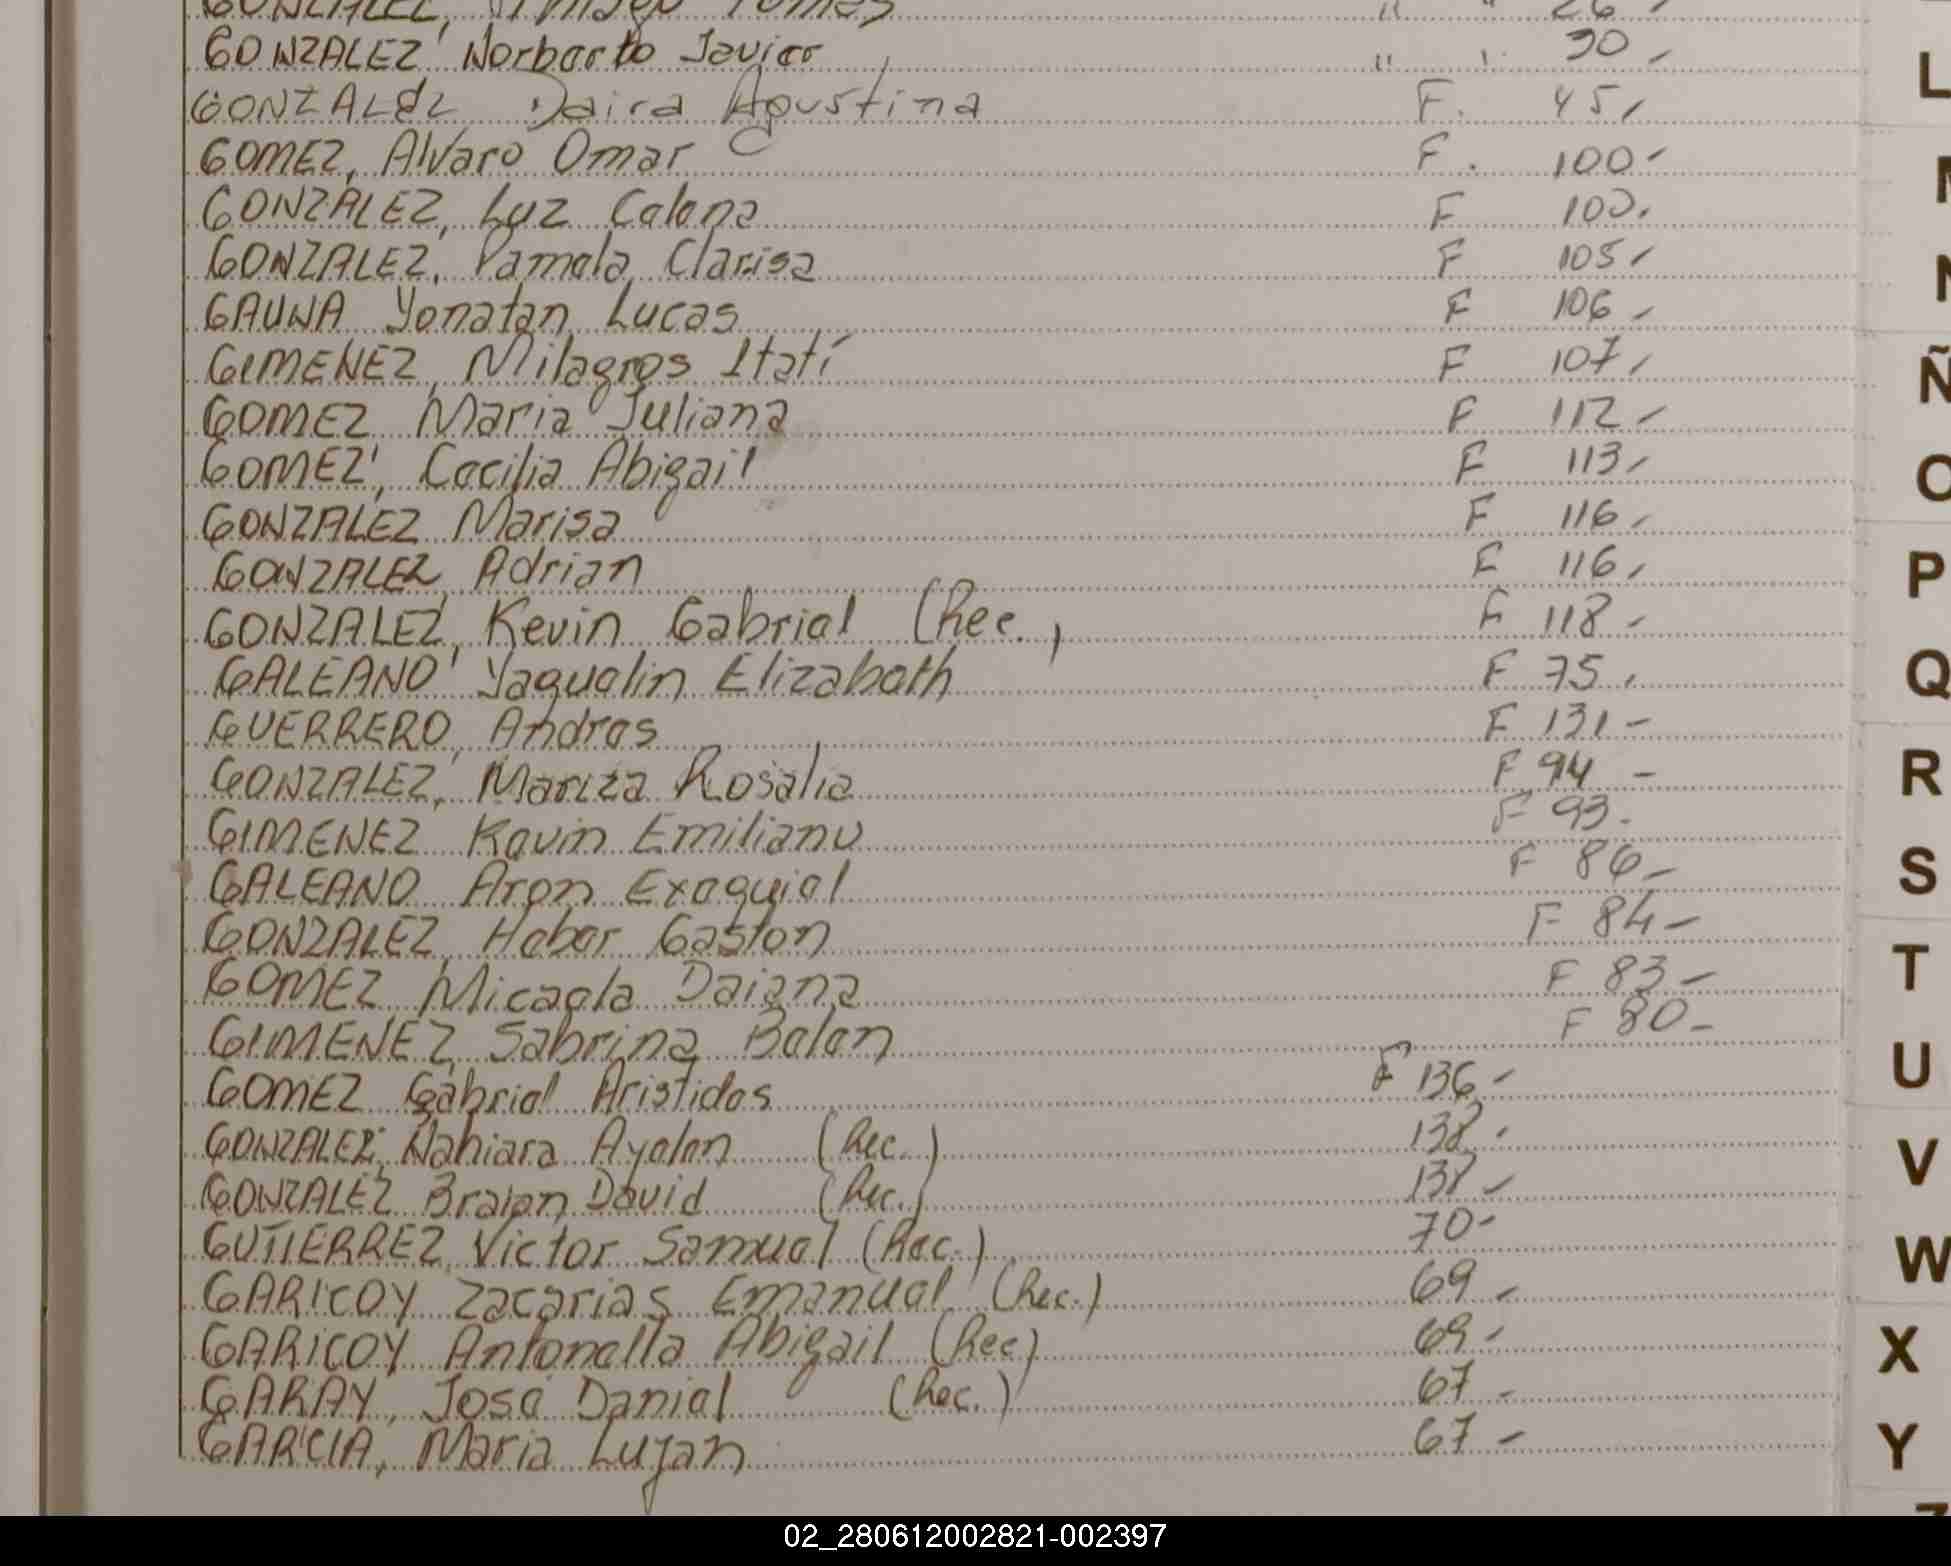 GONZALEZ, Thiago Tomas " " 26 -
GONZALEZ, Norberto Javier " " 30 -
GONZALEZ Daira Agustina F. 45 -
GOMEZ, Alvaro Omar F. 100 -
GONZALEZ, Luz Celene F 100.
GONZALEZ, Pamela Clarisa F 105 -
GAUNA Yonatan Lucas F 106 -
GIMENEZ, Milagros Itatí F 107 -
GOMEZ Maria Juliana F 112 -
GOMEZ, Cecilia Abigail F 113 -
GONZALEZ Marisa F 116 -
GONZALEZ, Adrian F 116 -
GONZALEZ, Kevin Gabriel (Rec.) F 118 -
GALEANO Yaquelin Elizabeth F 75 -
GUERRERO, Andres F 131 -
GONZALEZ, Mariza Rosalia F 94 -
GIMENEZ Kevin Emiliano F 93 -
GALEANO Aron Exequiel F 86 -
GONZALEZ, Heber Gaston F 84 -
GOMEZ, Micaela Daiana F 83 -
GIMENEZ, Sabrina Belen F 80 -
GOMEZ Gabriel Aristides F 136 -
GONZALEZ, Nahiara Ayelen (Rec.) 138 -
GONZALEZ Braian David (Rec.) 138 -
GUTIERREZ, Victor Samuel (Rec.) 70 -
GARICOY Zacarias Emanuel (Rec.) 69 -
GARICOY Antonella Abigail (Rec) 69 -
GARAY, José Daniel (Rec.) 67 -
GARCIA, Maria Lujan 67 -
L
N
Ñ
O
P
Q
R
S
T
U
V
W
X
Y
Z
02_280612002821-002397